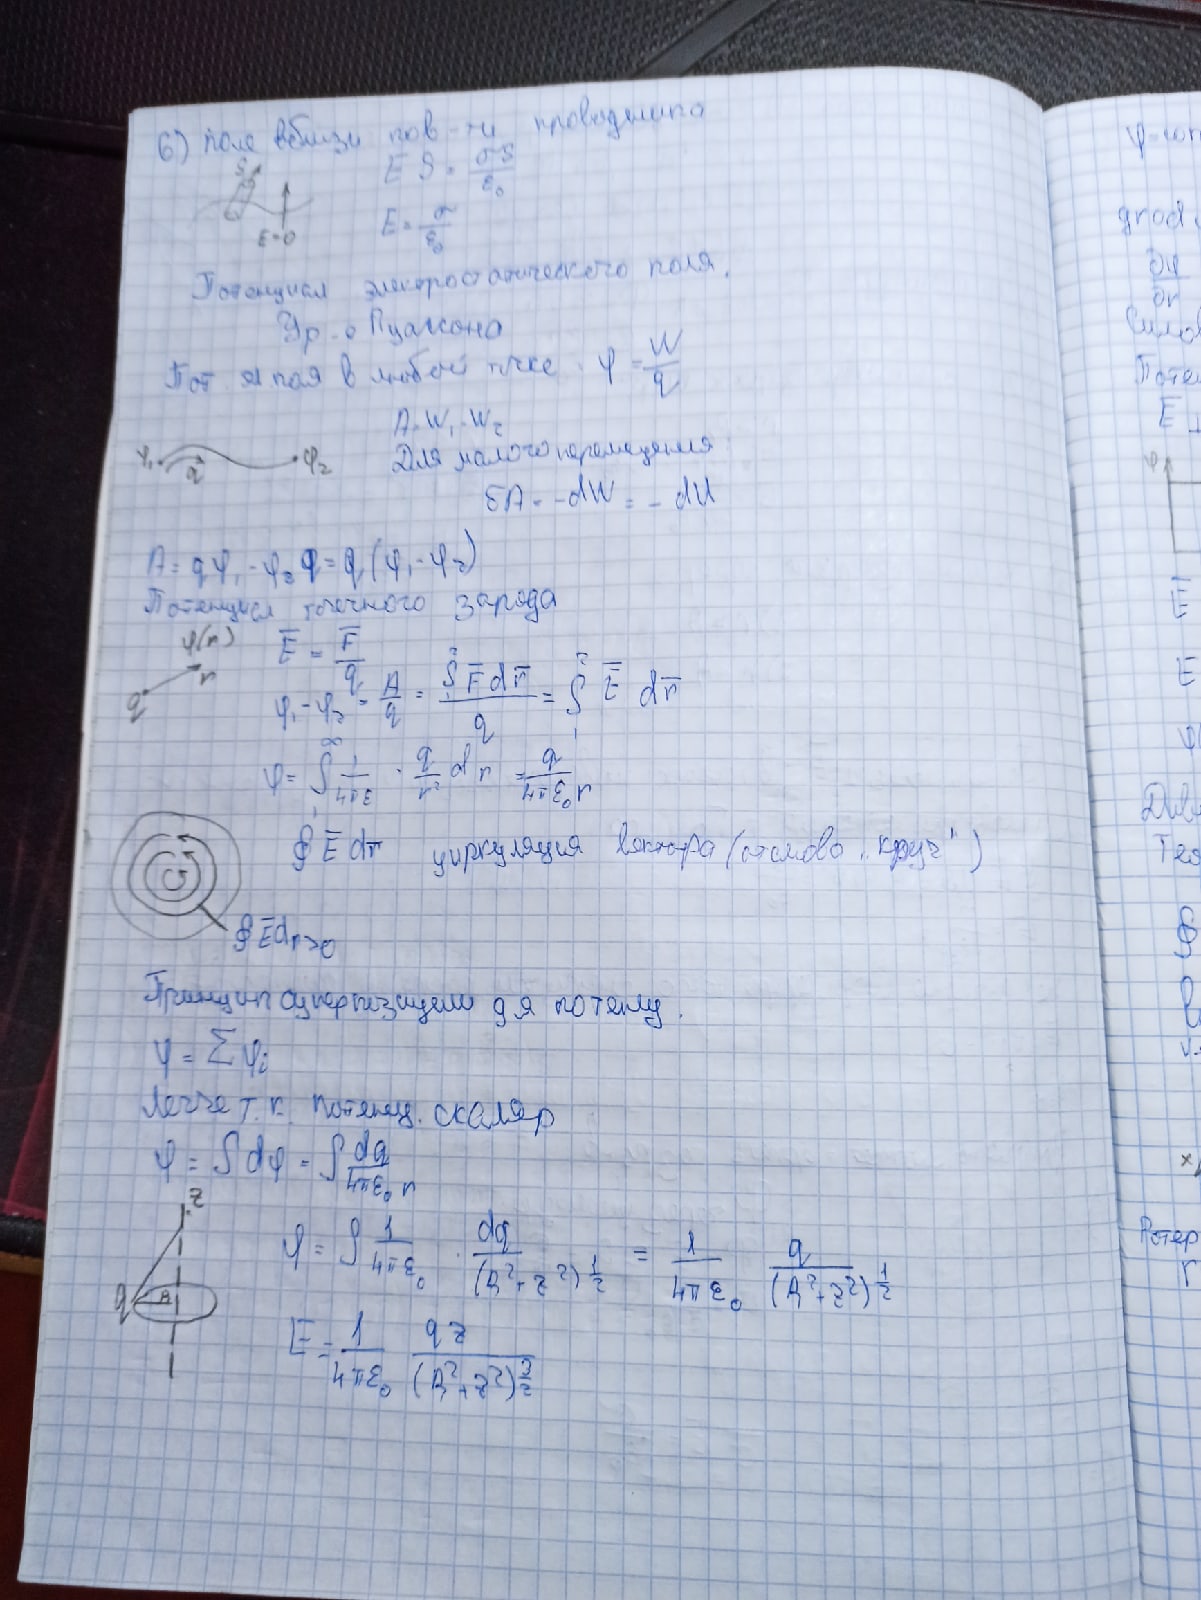 6) поле вблизи пов-ти проводника
S
E S = σS/ε₀
E=0
E = σ/ε₀
Потенциал электростатического поля.
Ур-е Пуассона
Пот эл поля в любой точке φ = W/q
A = W₁ - W₂
φ₁ q φ₂
Для малого перемещения
δA = -dW = -dU
A = qφ₁ - φ₂q = q(φ₁ - φ₂)
Потенциал точечного заряда
φ(r)
q r
E̅ = F̅/q
φ₁ - φ₂ = A/q = ∫₁² F̅ dr̅ / q = ∫₁² E̅ dr̅
φ = ∫₁^∞ 1/4πε · q/r² dr = q/4πε₀r
∮ E̅ dr̅ циркуляция вектора (от слово "круг")
∮ E̅dr>0
Принцип суперпозиции для потенц.
φ = Σ φi
Легче т.к. потенц. скаляр
φ = ∫ dφ = ∫ dq/4πε₀r
z
q R
φ = ∫ 1/4πε₀ · dq/(R²+z²)^1/2 = 1/4πε₀ q/(R²+z²)^1/2
E = 1/4πε₀ qz/(R²+z²)^3/2
φ=con
grad
∂φ
∂r
Силов
Поте
E
φ
E̅
E
φ
Див
Тео
∮
x
r